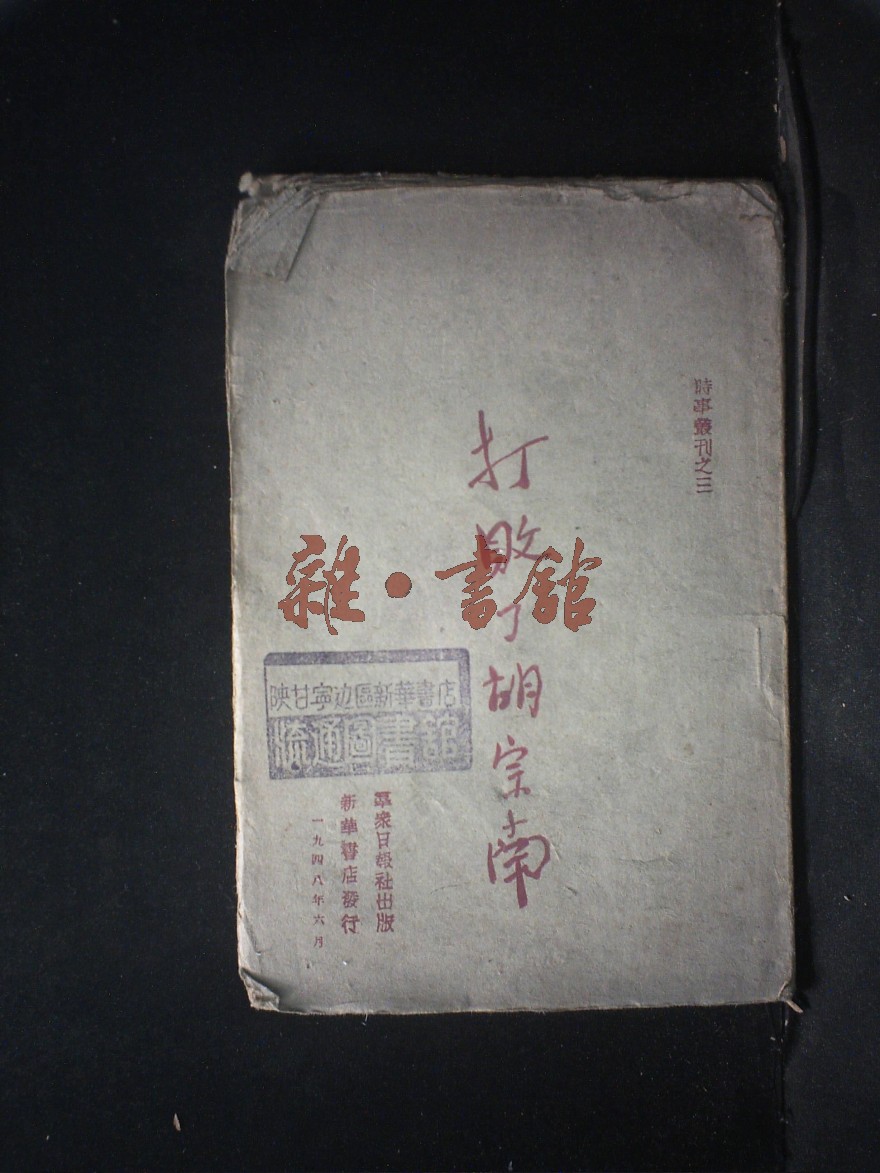 時事叢刊之三
打敗了胡宗南
雜·書館
陝甘寧边區新華書店
流通圖書館
羣衆日報社出版
新華書店發行
一九四八年六月